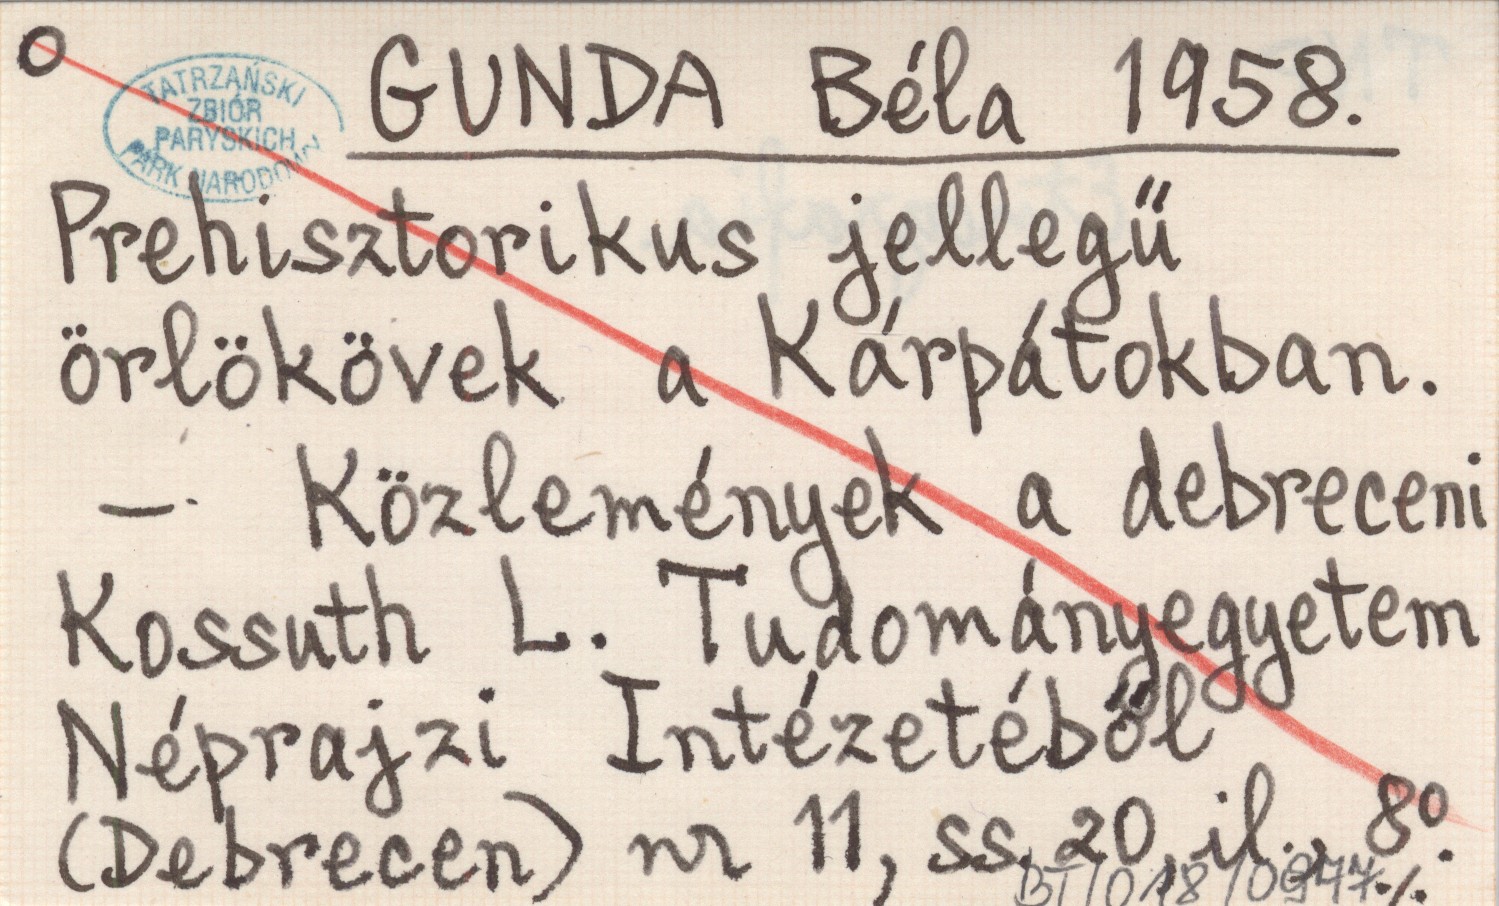 O
TATRZAŃSKI
ZBIÓR
PARYSKICH
PARK NARODOWY
GUNDA Béla 1958.
Prehisztorikus jellegű
örlökövek a Kárpátokban.
— Közlemények a debreceni
Kossuth L. Tudományegyetem
Néprajzi Intézetéből
(Debrecen) nr 11, ss. 20, il., 8º.
BT/018/0977 ./.